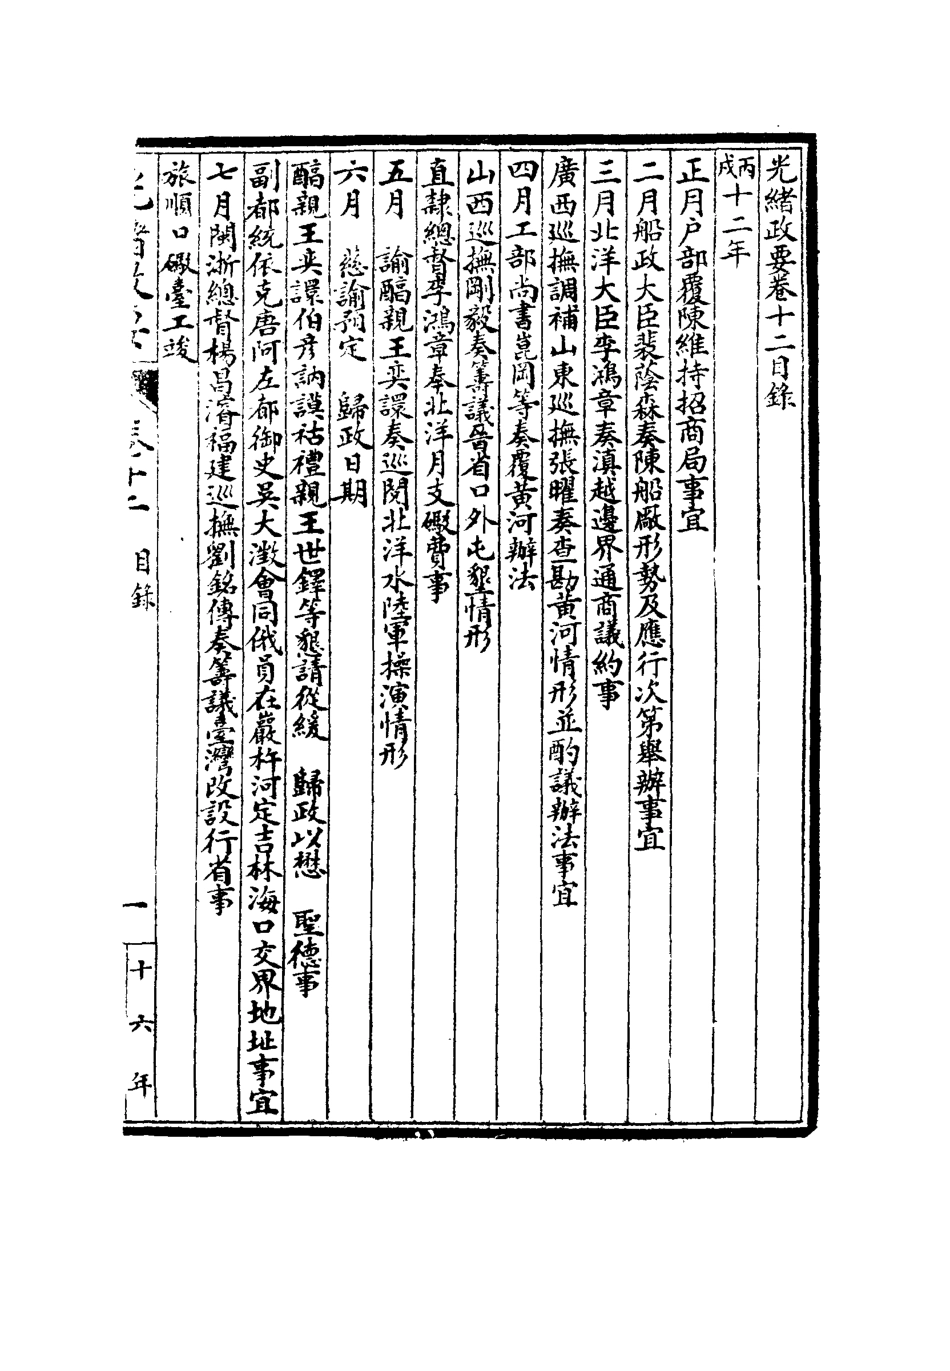 光緒政要卷十二目錄
丙戌十二年
正月戶部覆陳維持招商局事宜
二月船政大臣裴蔭森奏陳船廠形勢及應行次第舉辦事宜
三月北洋大臣李鴻章奏滇越邊界通商議約事
廣西巡撫調補山東巡撫張曜奏查勘黃河情形並酌議辦法事宜
四月工部尚書崑岡等奏覆黃河辦法
山西巡撫剛毅奏籌議晉省口外屯墾情形
直隸總督李鴻章奉北洋月支礮費事
五月　諭醕親王奕譞奏巡閱北洋水陸軍操演情形
六月　慈諭預定　歸政日期
醕親王奕譞伯彥訥謨祜禮親王世鐸等懇請從緩　歸政以懋　聖德事
副都統依克唐阿左都御史吳大澂會同俄員在巖杵河定吉林海口交界地址事宜
七月閩浙總督楊昌濬福建巡撫劉銘傳奏籌議臺灣改設行省事
旅順口礮臺工竣
光緒政要　卷十二　目錄　一　十六年